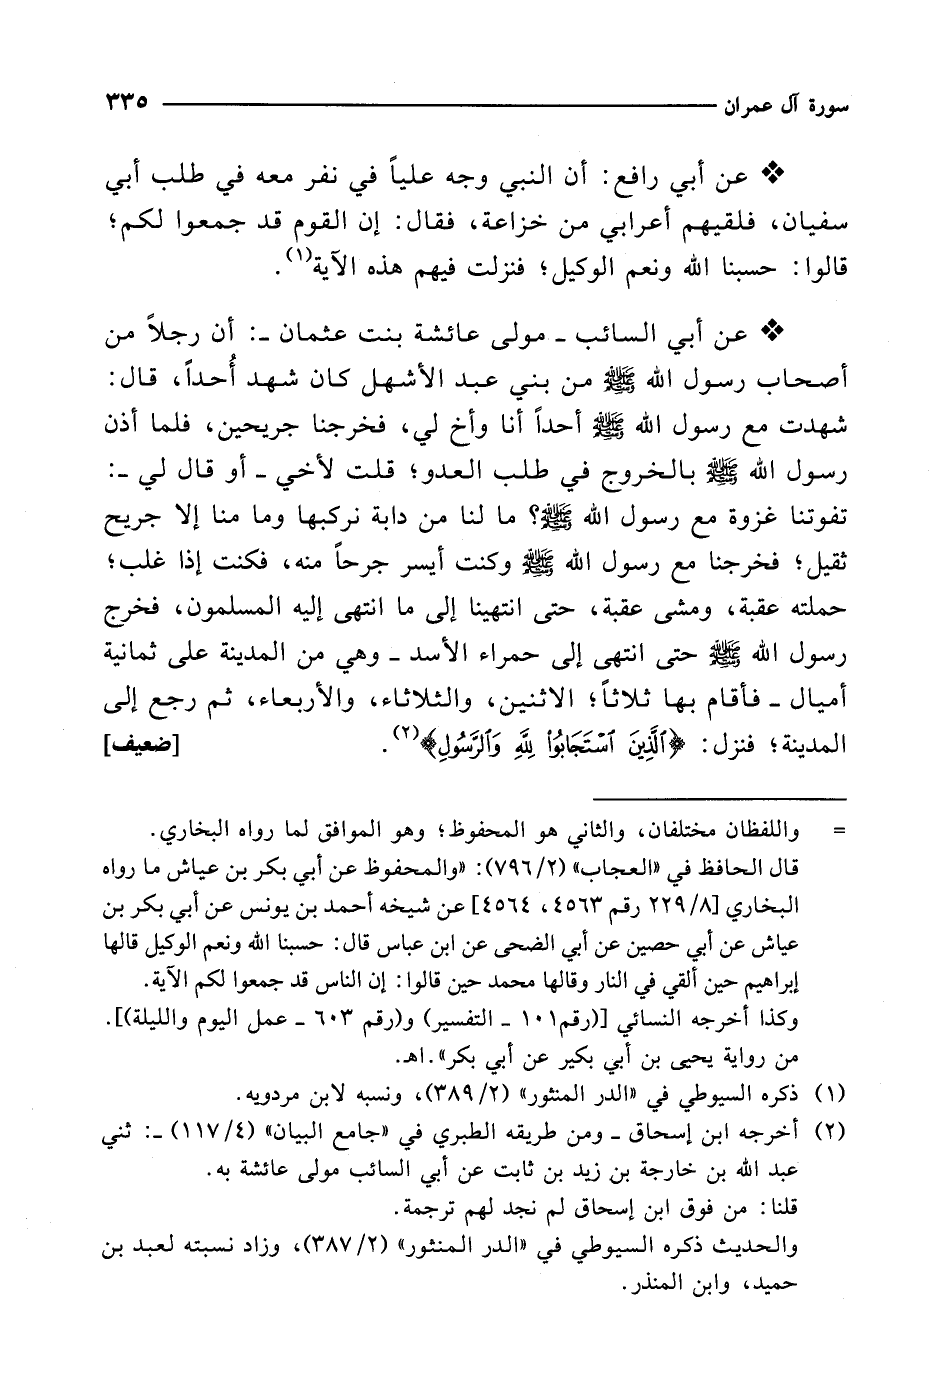 سورة آل عمران ٣٣٥
❖ عن أبي رافع: أن النبي وجه علياً في نفر معه في طلب أبي
سفيان، فلقيهم أعرابي من خزاعة، فقال: إن القوم قد جمعوا لكم؛
قالوا: حسبنا الله ونعم الوكيل؛ فنزلت فيهم هذه الآية(١).
❖ عن أبي السائب ـ مولى عائشة بنت عثمان ـ: أن رجلاً من
أصحاب رسول الله ﷺ من بني عبد الأشهل كان شهد أُحداً، قال:
شهدت مع رسول الله ﷺ أحداً أنا وأخ لي، فخرجنا جريحين، فلما أذن
رسول الله ﷺ بالخروج في طلب العدو؛ قلت لأخي ـ أو قال لي ـ:
تفوتنا غزوة مع رسول الله ﷺ؟ ما لنا من دابة نركبها وما منا إلا جريح
ثقيل؛ فخرجنا مع رسول الله ﷺ وكنت أيسر جرحاً منه، فكنت إذا غلب؛
حملته عقبة، ومشى عقبة، حتى انتهينا إلى ما انتهى إليه المسلمون، فخرج
رسول الله ﷺ حتى انتهى إلى حمراء الأسد ـ وهي من المدينة على ثمانية
أميال ـ فأقام بها ثلاثاً؛ الاثنين، والثلاثاء، والأربعاء، ثم رجع إلى
المدينة؛ فنزل: ﴿ٱلَّذِينَ ٱسْتَجَابُواْ لِلَّهِ وَٱلرَّسُولِ﴾(٢). [ضعيف]
= واللفظان مختلفان، والثاني هو المحفوظ؛ وهو الموافق لما رواه البخاري.
قال الحافظ في «العجاب» (٢/ ٧٩٦): «والمحفوظ عن أبي بكر بن عياش ما رواه
البخاري [٨/ ٢٢٩ رقم ٤٥٦٣، ٤٥٦٤] عن شيخه أحمد بن يونس عن أبي بكر بن
عياش عن أبي حصين عن أبي الضحى عن ابن عباس قال: حسبنا الله ونعم الوكيل قالها
إبراهيم حين ألقي في النار وقالها محمد حين قالوا: إن الناس قد جمعوا لكم الآية.
وكذا أخرجه النسائي [(رقم١٠١ ـ التفسير) و(رقم ٦٠٣ ـ عمل اليوم والليلة)].
من رواية يحيى بن أبي بكير عن أبي بكر».اهـ.
(١) ذكره السيوطي في «الدر المنثور» (٢/ ٣٨٩)، ونسبه لابن مردويه.
(٢) أخرجه ابن إسحاق ـ ومن طريقه الطبري في «جامع البيان» (٤/ ١١٧) ـ: ثني
عبد الله بن خارجة بن زيد بن ثابت عن أبي السائب مولى عائشة به.
قلنا: من فوق ابن إسحاق لم نجد لهم ترجمة.
والحديث ذكره السيوطي في «الدر المنثور» (٢/ ٣٨٧)، وزاد نسبته لعبد بن
حميد، وابن المنذر.